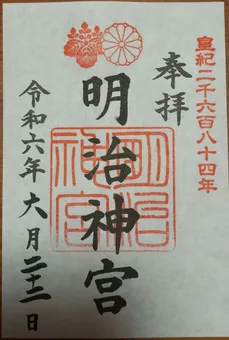 皇紀二千六百八十四年
奉拝
明治神宮
明治
神宮
令和六年六月二十二日